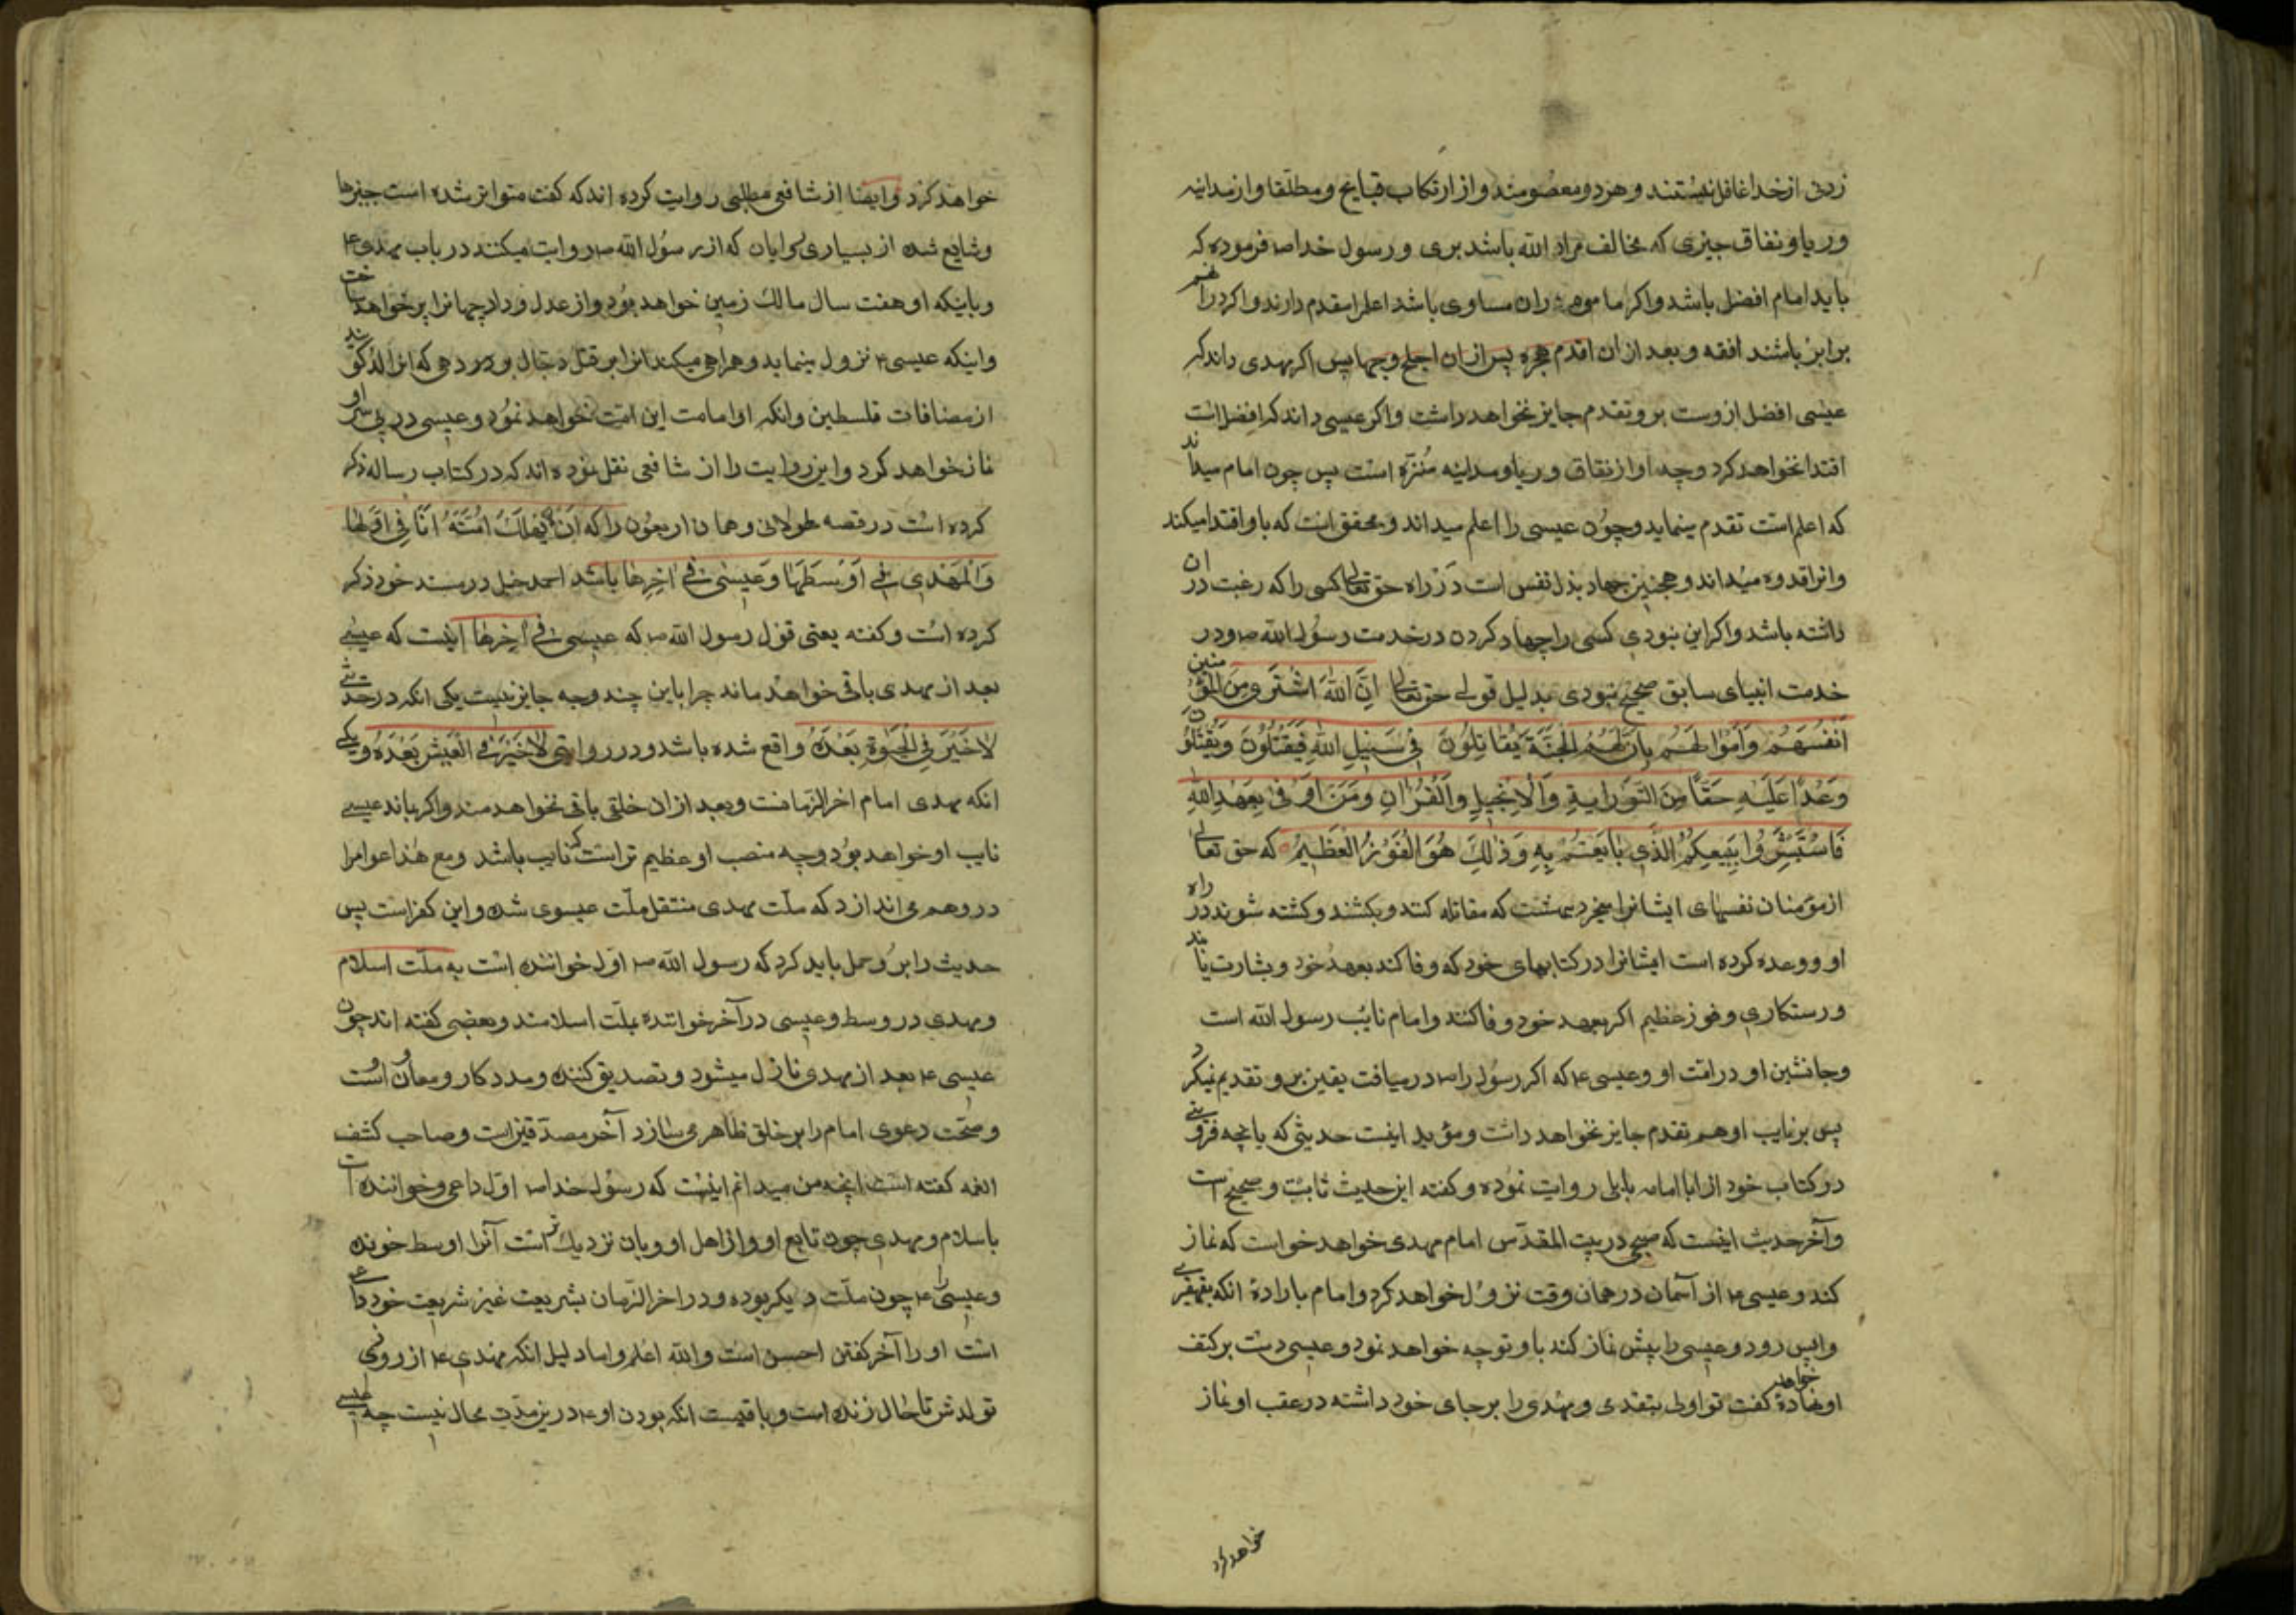 زدنی از خدا غافل نیستند و هر دو معصومند و از ارتکاب قبایح و مطلقا و از مداینه
و ریا و نفاق جیزی که مخالف مراد الله باشد بری و رسول خدا ص فرموده که
باید امام افضل باشد و اکر ماموم در ان مساوی باشد اعلم را مقدم دارند و اکر در آنهم
برابر باشند افقه و بعد از ان اقدم هجرة پس از ان اجلح وجها پس اکر مهدی داند که
عیسی افضل ازوست برو تقدم جایز نخواهد داشت و اکر عیسی داند که افضل است
اقتدا نخواهد کرد و چه او از نفاق و ریا و مداینه مُنزّه است پس چون امام میداند
که اعلم است تقدم مینماید و چون عیسی را اعلم میداند و محقق است که باو اقتدا میکند
وانرا قدوه میداند و همچنین جهاد بذل نفس است در راه حق تعالی کسی را که رغبت در ان
داشته باشد و اکر این نبودی کسی را جهاد کردن در خدمت رسول الله ص و در
خدمت انبیای سابق صحیح نبودی بدلیل قولی حق تعالی اِنَّ اللّهَ اشْتَرٰی مِنَ المُؤْمنین
اَنْفُسَهُمْ وَاَمْوٰالَهُمْ بِاَنَّ لَهُمُ الْجَنَّةَ یُقاتِلُونَ فی سَبیلِ اللّهِ فَیَقْتُلُونَ وَیُقْتَلُونَ
وَعْدًا عَلَیْهِ حَقًّا مِنَ التَّوْرایةِ وَالْاِنْجیلِ وَالْقُرْاٰنِ وَمَنْ اَوْفیٰ بِعَهْدِ اللّهِ
فَاسْتَبْشِرُوا بِبَیْعِکُمُ الَّذی بٰایَعْتُمْ بِهِ وَذٰلِکَ هُوَ الْفَوْزُ الْعَظیمُ که حق تعالی
از مؤمنان نفسهای ایشانرا میخرد ببهشت که مقاتله کنند و بکشند و کشته شوند در راه
او و وعده کرده است ایشانرا در کتابهای خود که وفا کند بعهد خود و بشارت یابند
و رستکاری و فوز عظیم اکر بعهد خود وفا کنند و امام نایب رسول الله است
و جانشین او در امّت او و عیسی ع که اکر رسول را ص درمیافت یقین برو تقدیم نمیکرد
پس بر نایب او هم تقدم جایز نخواهد داشت و مؤید اینست حدیثی که یا نجه قزوینی
در کتاب خود از ابا امامه بابلی روایت نموده و کفته این حدیث ثابت و صحیح است
و آخر حدیث اینست که صبحی در بیت المقدّس امام مهدی خواهد خواست که نماز
کند و عیسی ع از آسمان در همان وقت نزول خواهد کرد و امام باراده انکه بقهقری
واپس رود و عیسی را پیش نماز کند باو توجه خواهد نمود و عیسی دست بر کتف
او نهاده خواهد کفت تو اولی بتقدمی و مهدی را بر جای خود داشته در عقب او نماز
خواهد کرد
خواهد کرد وایضا از شافعی مطلبی روایت کرده اند که کفت متواتر شده است خبرها
و شایع شده از بسیاری راویان که از رسول الله ص روایت میکنند در باب مهدی ع
و باینکه او هفت سال مالک زمین خواهد بود و از عدل و داد جهانرا پر خواهد ساخت
و اینکه عیسی ع نزول مینماید و همراهی میکند انرا بر قتل دجّال بر در دهی که انرا لُد کویند
از مضافات فلسطین و انکه او امامت این امّت خواهد نمود و عیسی در پی سر او
نماز خواهد کرد و این روایت را از شافعی نقل نموده اند که در کتاب رساله ذکر
کرده است در قصه طولانی و همان اربعون را که اَنْ یُهْلَکَ اُمَّتَهُ اَنَا فی اَوَّلِها
وَالْمَهْدی فی اَوْسَطِها وَعیسیٰ فی اٰخِرِها باشد احمد حنبل در مسند خود ذکر
کرده است و کفته یعنی قول رسول الله ص که عیسی فی اٰخرها اینست که عیسی
بعد از مهدی باقی خواهد ماند چرا باین چند وجه جایز نیست یکی انکه در حدیثی
لاٰ خَیْرَ فِی الْحَیوٰةِ بَعْدَهُ واقع شده باشد و در روایتی لاٰ خَیْرَ فِی الْعَیْشِ بَعْدَهُ و یکی
انکه مهدی امام اخر الزمانست و بعد از ان خلقی باقی نخواهد مند و اکر بماند عیسی
نایب او خواهد بود و چه منصب او عظیم تر است که نایب باشد و مع هذا عوام را
در وهم می اندازد که ملّت مهدی منتقل ملّت عیسوی شده و این کفر است پس
حدیث را بر و حمل باید کرد که رسول الله ص اول خواننده است به ملّت اسلام
و مهدی در وسط و عیسی در آخر خواننده بملّت اسلامند و بعضی کفته اند چون
عیسی ع بعد از مهدی نازل میشود و تصدیق کننده و مددکار و معاون اوست
و صحّت دعوی امام را بر خلق ظاهر می سازد آخر مصدّقین است و صاحب کشف
الغمه کفته است انچه من میدانم اینست که رسول خدا ص اوّل داعی و خواننده است
باسلام و مهدی چون تابع او و از اهل او و بان نزدیک تر است آنرا اوسط خونده
و عیسی ع چون ملّت دیکر بوده و در اخر الزّمان بشریعت غیر شریعت خود داعی
است او را آخر کفتن احسن است والله اعلم و اما دلیل انکه مهدی ع از روزی
تولدش تا حال زنده است و باقیست انکه بودن او ع درین مدّت محال نیست چه عیسی